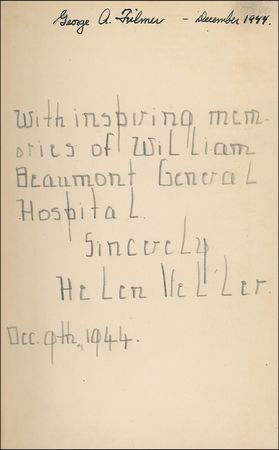 George A. Filmer - December 1944.
With inspiring mem-
ories of William
Beaumont General
Hospital.
Sincerely
Helen Keller.
Dec. 9th, 1944.